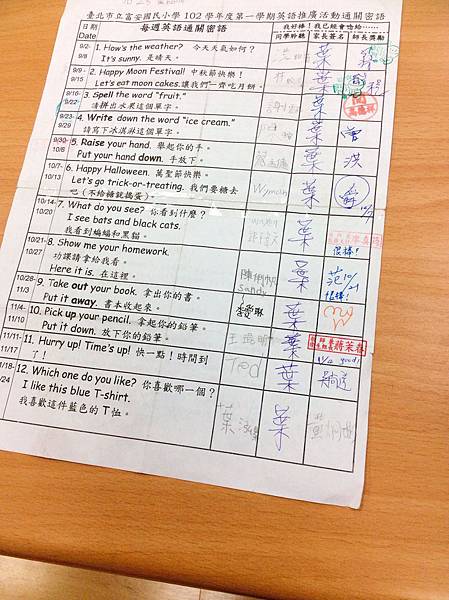 臺北市立富安國民小學 102 學年度第一學期英語推廣活動通關密語
日期 Date
每週英語通關密語
我好棒！我已經會唸給……
同學聆聽 家長簽名 師長獎勵
9/2-9/8
1. How's the weather? 今天天氣如何？
It's sunny. 是晴天。
葉
9/9-9/15
2. Happy Moon Festival! 中秋節快樂！
Let's eat moon cakes.讓我們一齊吃月餅。
葉
9/16-9/22
3. Spell the word "fruit."
請拼出水果這個單字。
葉
9/23-9/29
4. Write down the word "ice cream."
請寫下冰淇淋這個單字。
葉 曾
9/30-10/6
5. Raise your hand. 舉起你的手。
Put your hand down. 手放下。
葉 洪
10/7-10/13
6. Happy Halloween. 萬聖節快樂。
Let's go trick-or-treating. 我們要糖去
吧（不給糖就搗蛋）。
葉
10/14-10/20
7. What do you see? 你看到什麼？
I see bats and black cats.
我看到蝙蝠和黑貓。
葉
10/21-10/27
8. Show me your homework.
功課請拿給我看。
Here it is. 在這裡。
Sandy 葉 范 10/21
很棒！
10/28-11/3
9. Take out your book. 拿出你的書。
Put it away. 書本收起來。
葉
11/4-11/10
10. Pick up your pencil. 拿起你的鉛筆。
Put it down. 放下你的鉛筆。
葉
11/11-11/17
11. Hurry up! Time's up! 快一點！時間到
了！
Ted 葉
11/18-11/24
12. Which one do you like? 你喜歡哪一個？
I like this blue T-shirt.
我喜歡這件藍色的 T 恤。
葉 葉